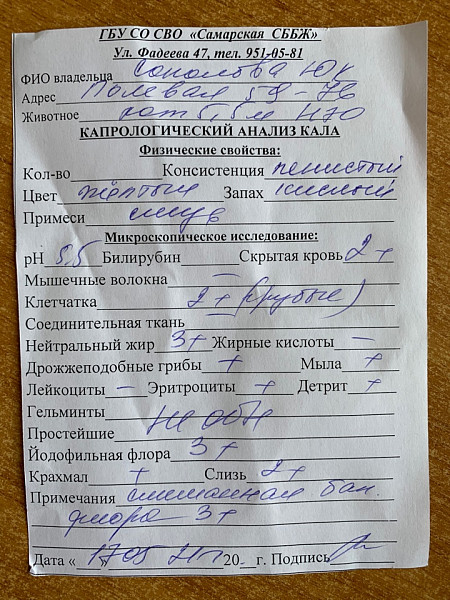 ГБУ СО СВО «Самарская СББЖ»
Ул. Фадеева 47, тел. 951-05-81
ФИО владельца Соколова Ю К
Адрес Полевая 59-76
Животное кот 5,5м
КАПРОЛОГИЧЕСКИЙ АНАЛИЗ КАЛА
Физические свойства:
Кол-во Консистенция пенистый
Цвет жёлтый Запах кислый
Примеси
Микроскопическое исследование:
pH 5,5 Билирубин Скрытая кровь 2+
Мышечные волокна –
Клетчатка 2+ (грубые)
Соединительная ткань
Нейтральный жир 3+ Жирные кислоты –
Дрожжеподобные грибы + Мыла +
Лейкоциты – Эритроциты + Детрит +
Гельминты
Простейшие не обн
Йодофильная флора 3+
Крахмал + Слизь 2+
Примечания смешанная бак.
флора 3+
Дата « 17 » 05 20 г. Подпись